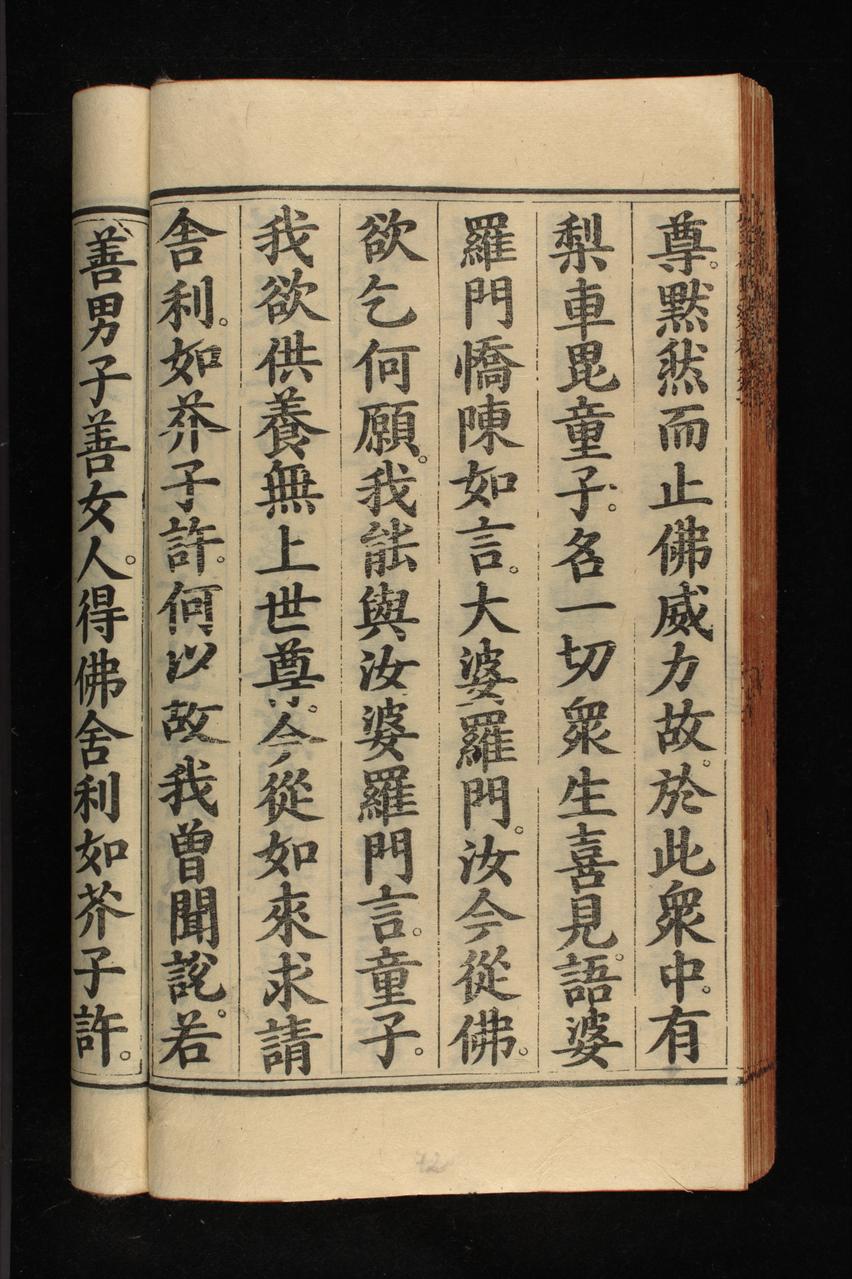 尊。黙然而止佛威力故。於此衆中。有
梨車毘童子。名一切衆生喜見。語婆
羅門憍陳如言。大婆羅門。汝今從佛。
欲乞何願。我能與汝婆羅門言。童子。
我欲供養無上世尊。今從如來求請
舍利。如芥子許。何以故我曾聞說。若
善男子善女人。得佛舍利如芥子許。